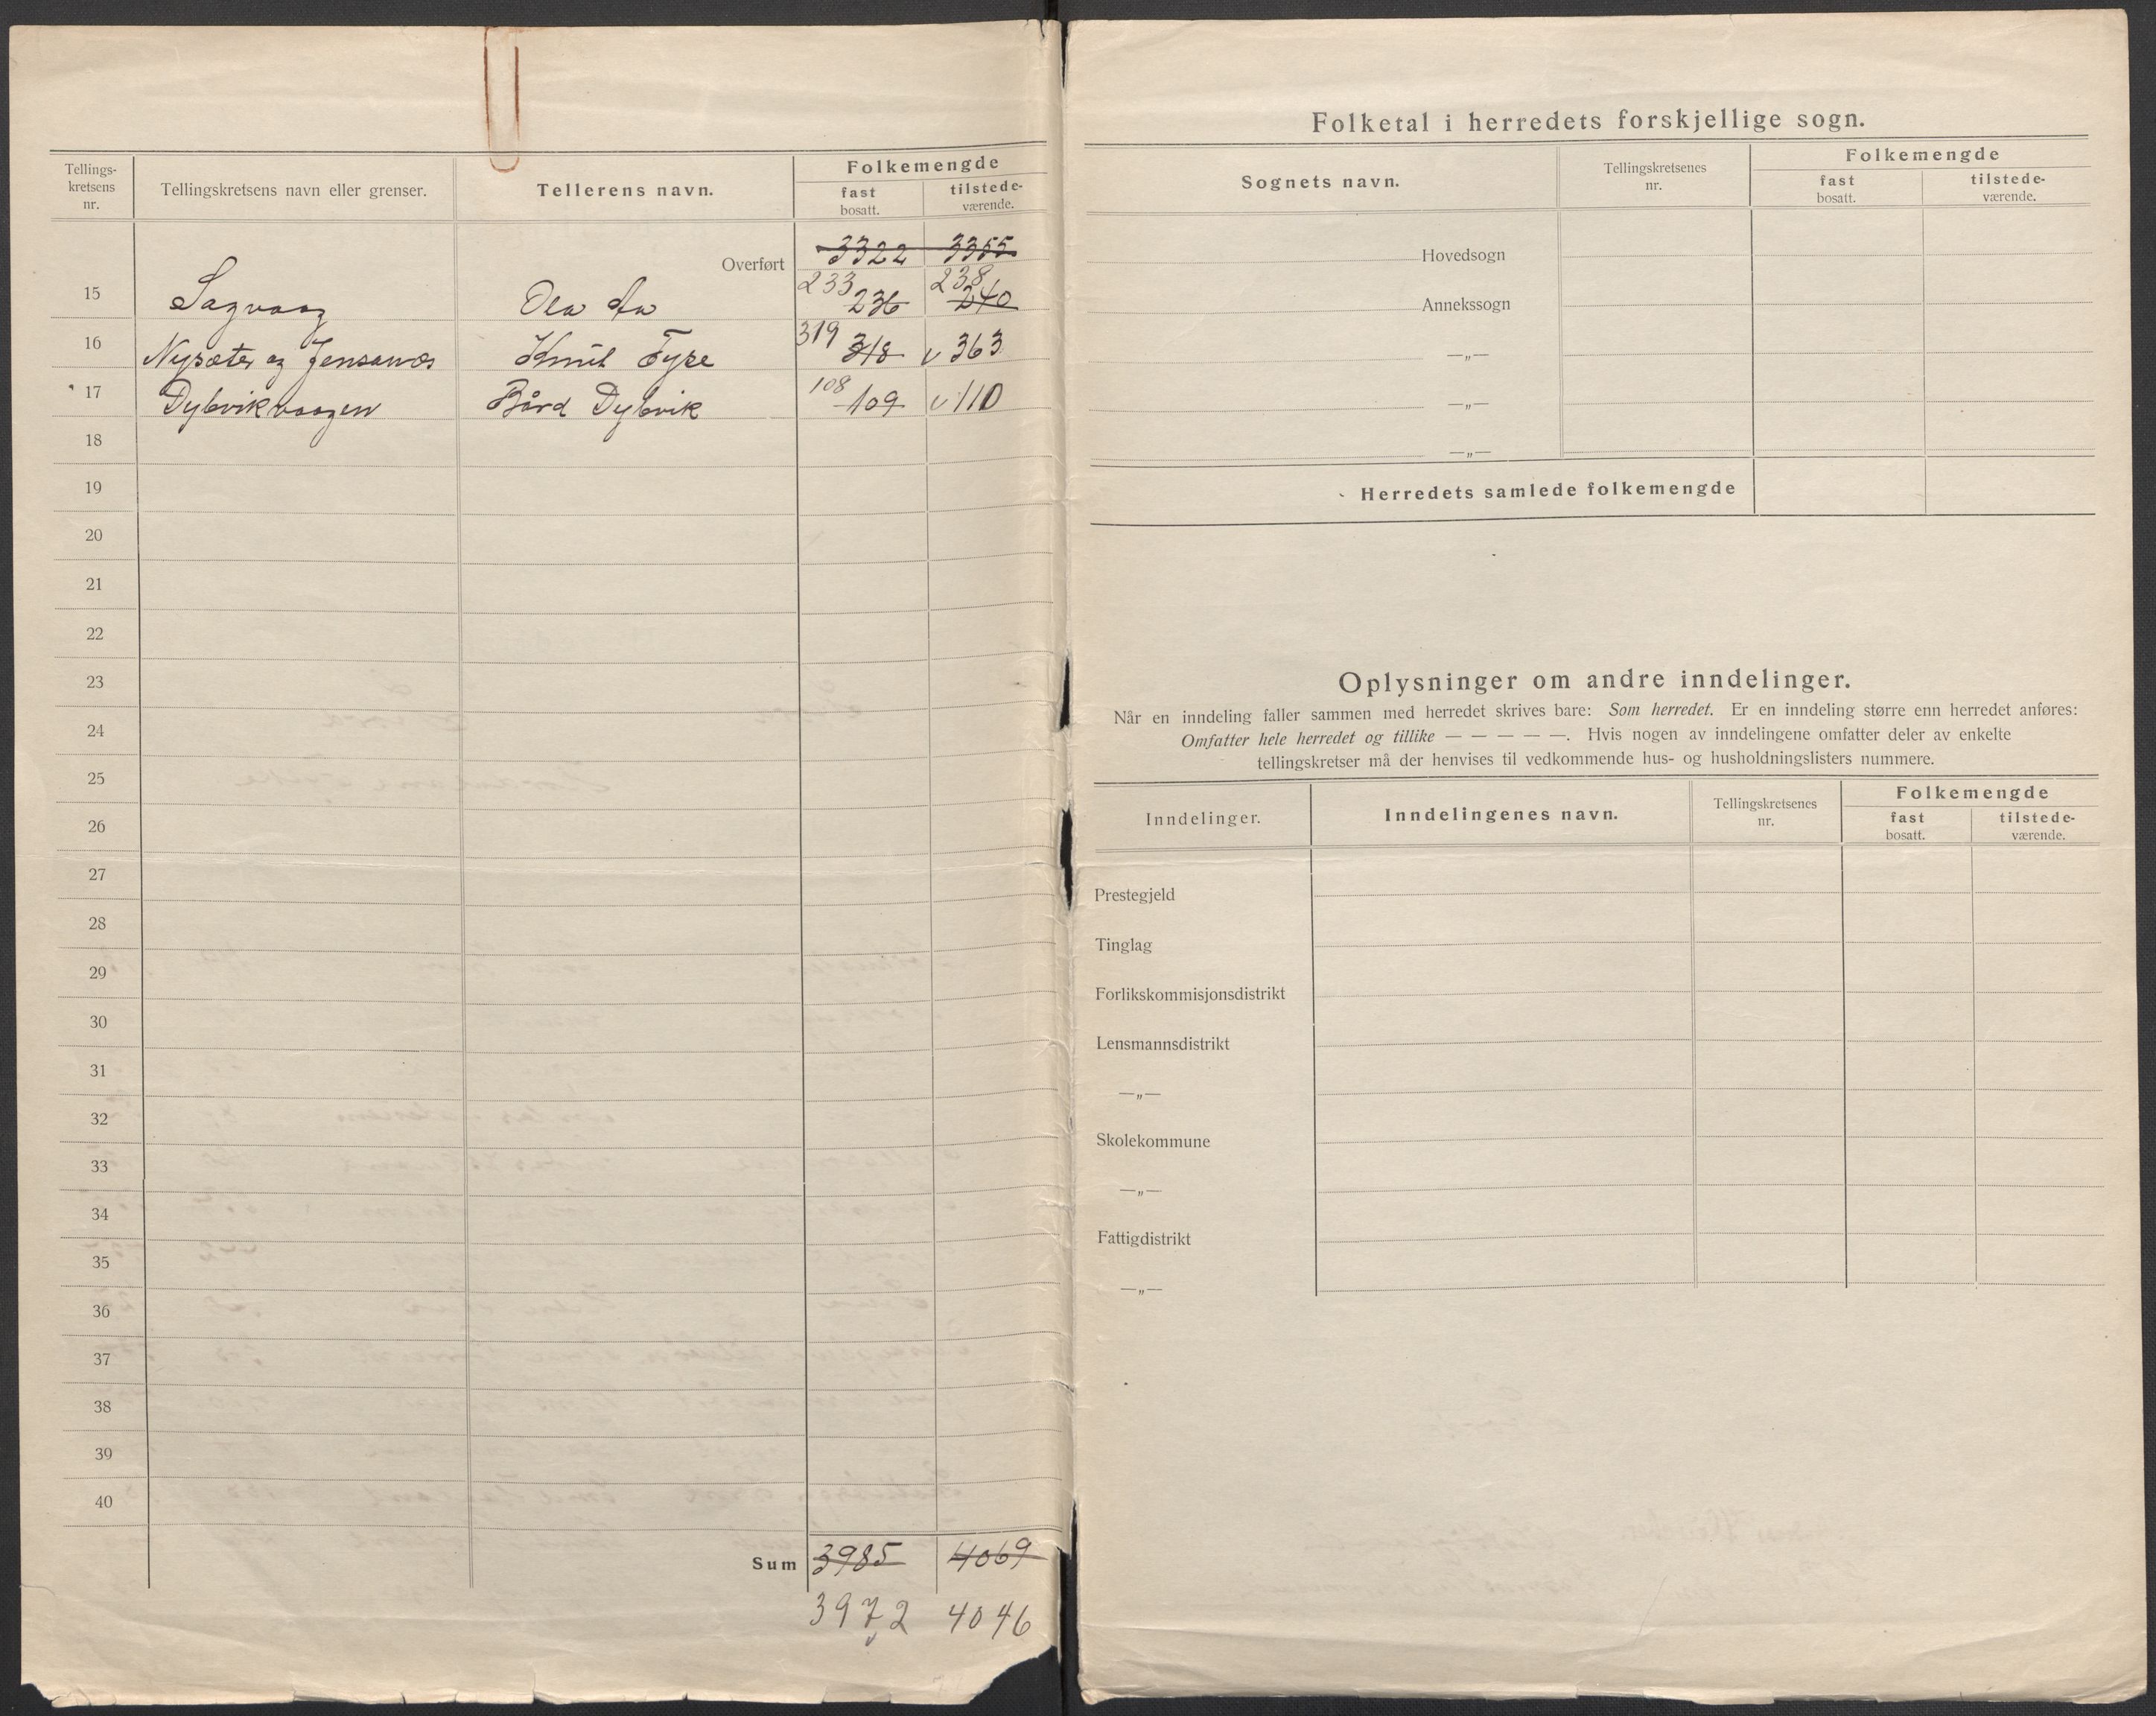 Tellings-
kretsens
nr.
Tellingskretsens navn eller grenser.
Tellerens navn.
Folkemengde
fast
bosatt.
tilstede-
værende.
Overført
3322 3355
233 238
15 Sagvaag Ola Aa 236 240
319
16 Nysæter og Jensanæs Knut Tyse 318 v 363
108
17 Dybvikvaagen Bård Dybvik 109 v 110
18
19
20
21
22
23
24
25
26
27
28
29
30
31
32
33
34
35
36
37
38
39
40
Sum 3985 4069
3972 4046
Folketal i herredets forskjellige sogn.
Sognets navn.
Tellingskretsenes
nr.
Folkemengde
fast
bosatt.
tilstede-
værende.
Hovedsogn
Annekssogn
—„—
—„—
—„—
Herredets samlede folkemengde
Oplysninger om andre inndelinger.
Når en inndeling faller sammen med herredet skrives bare: Som herredet. Er en inndeling større enn herredet anføres:
Omfatter hele herredet og tillike — — — — —. Hvis nogen av inndelingene omfatter deler av enkelte
tellingskretser må der henvises til vedkommende hus- og husholdningslisters nummere.
Inndelinger.
Inndelingenes navn.
Tellingskretsenes
nr.
Folkemengde
fast
bosatt.
tilstede-
værende.
Prestegjeld
Tinglag
Forlikskommisjonsdistrikt
Lensmannsdistrikt
—„—
Skolekommune
—„—
Fattigdistrikt
—„—